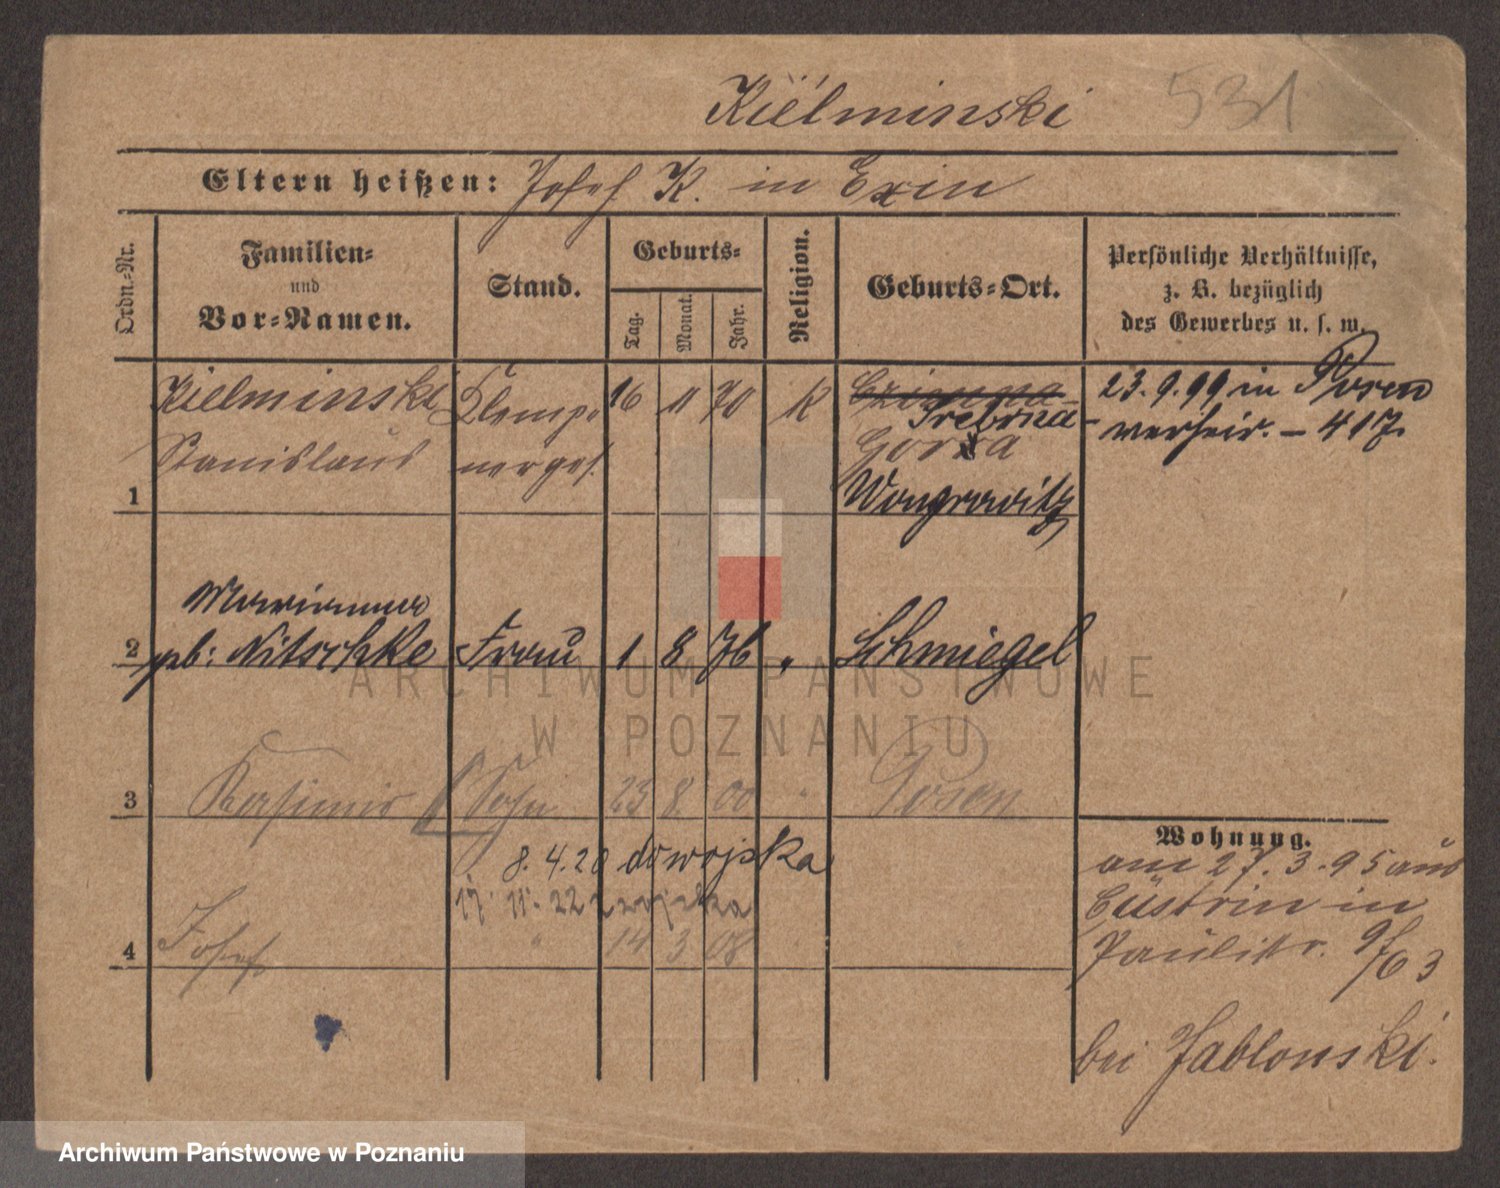 Kielminski 531
Eltern heißen: Josef K. in Exin
Ordn.-Nr.
Familien-
und
Vor-Namen.
Stand.
Geburts-
Tag.
Monat.
Jahr.
Religion.
Geburts-Ort.
Persönliche Verhältnisse,
z. B. bezüglich
des Gewerbes u. s. w.
Kielminski Klemp- 16 11 70 K 23.9.99 in Posen
Srebrna- verheir. - 417.
Stanislaus nerges. Gorra
1 Wongrowitz
Marianna
2 geb: Nitschke Frau 1 8 76 " Schmiegel
3 Kasimir Sohn 23 8 00 " Posen
8.4.20 do wojska
17. 11. 22 z wojska
4 Josef " 14 3 08 "
Wohnung.
am 27.3.95 aus
Cüstrin in
Paulistr. 9/63
bei Jablonski.
ARCHIWUM PAŃSTWOWE
W POZNANIU
Archiwum Państwowe w Poznaniu